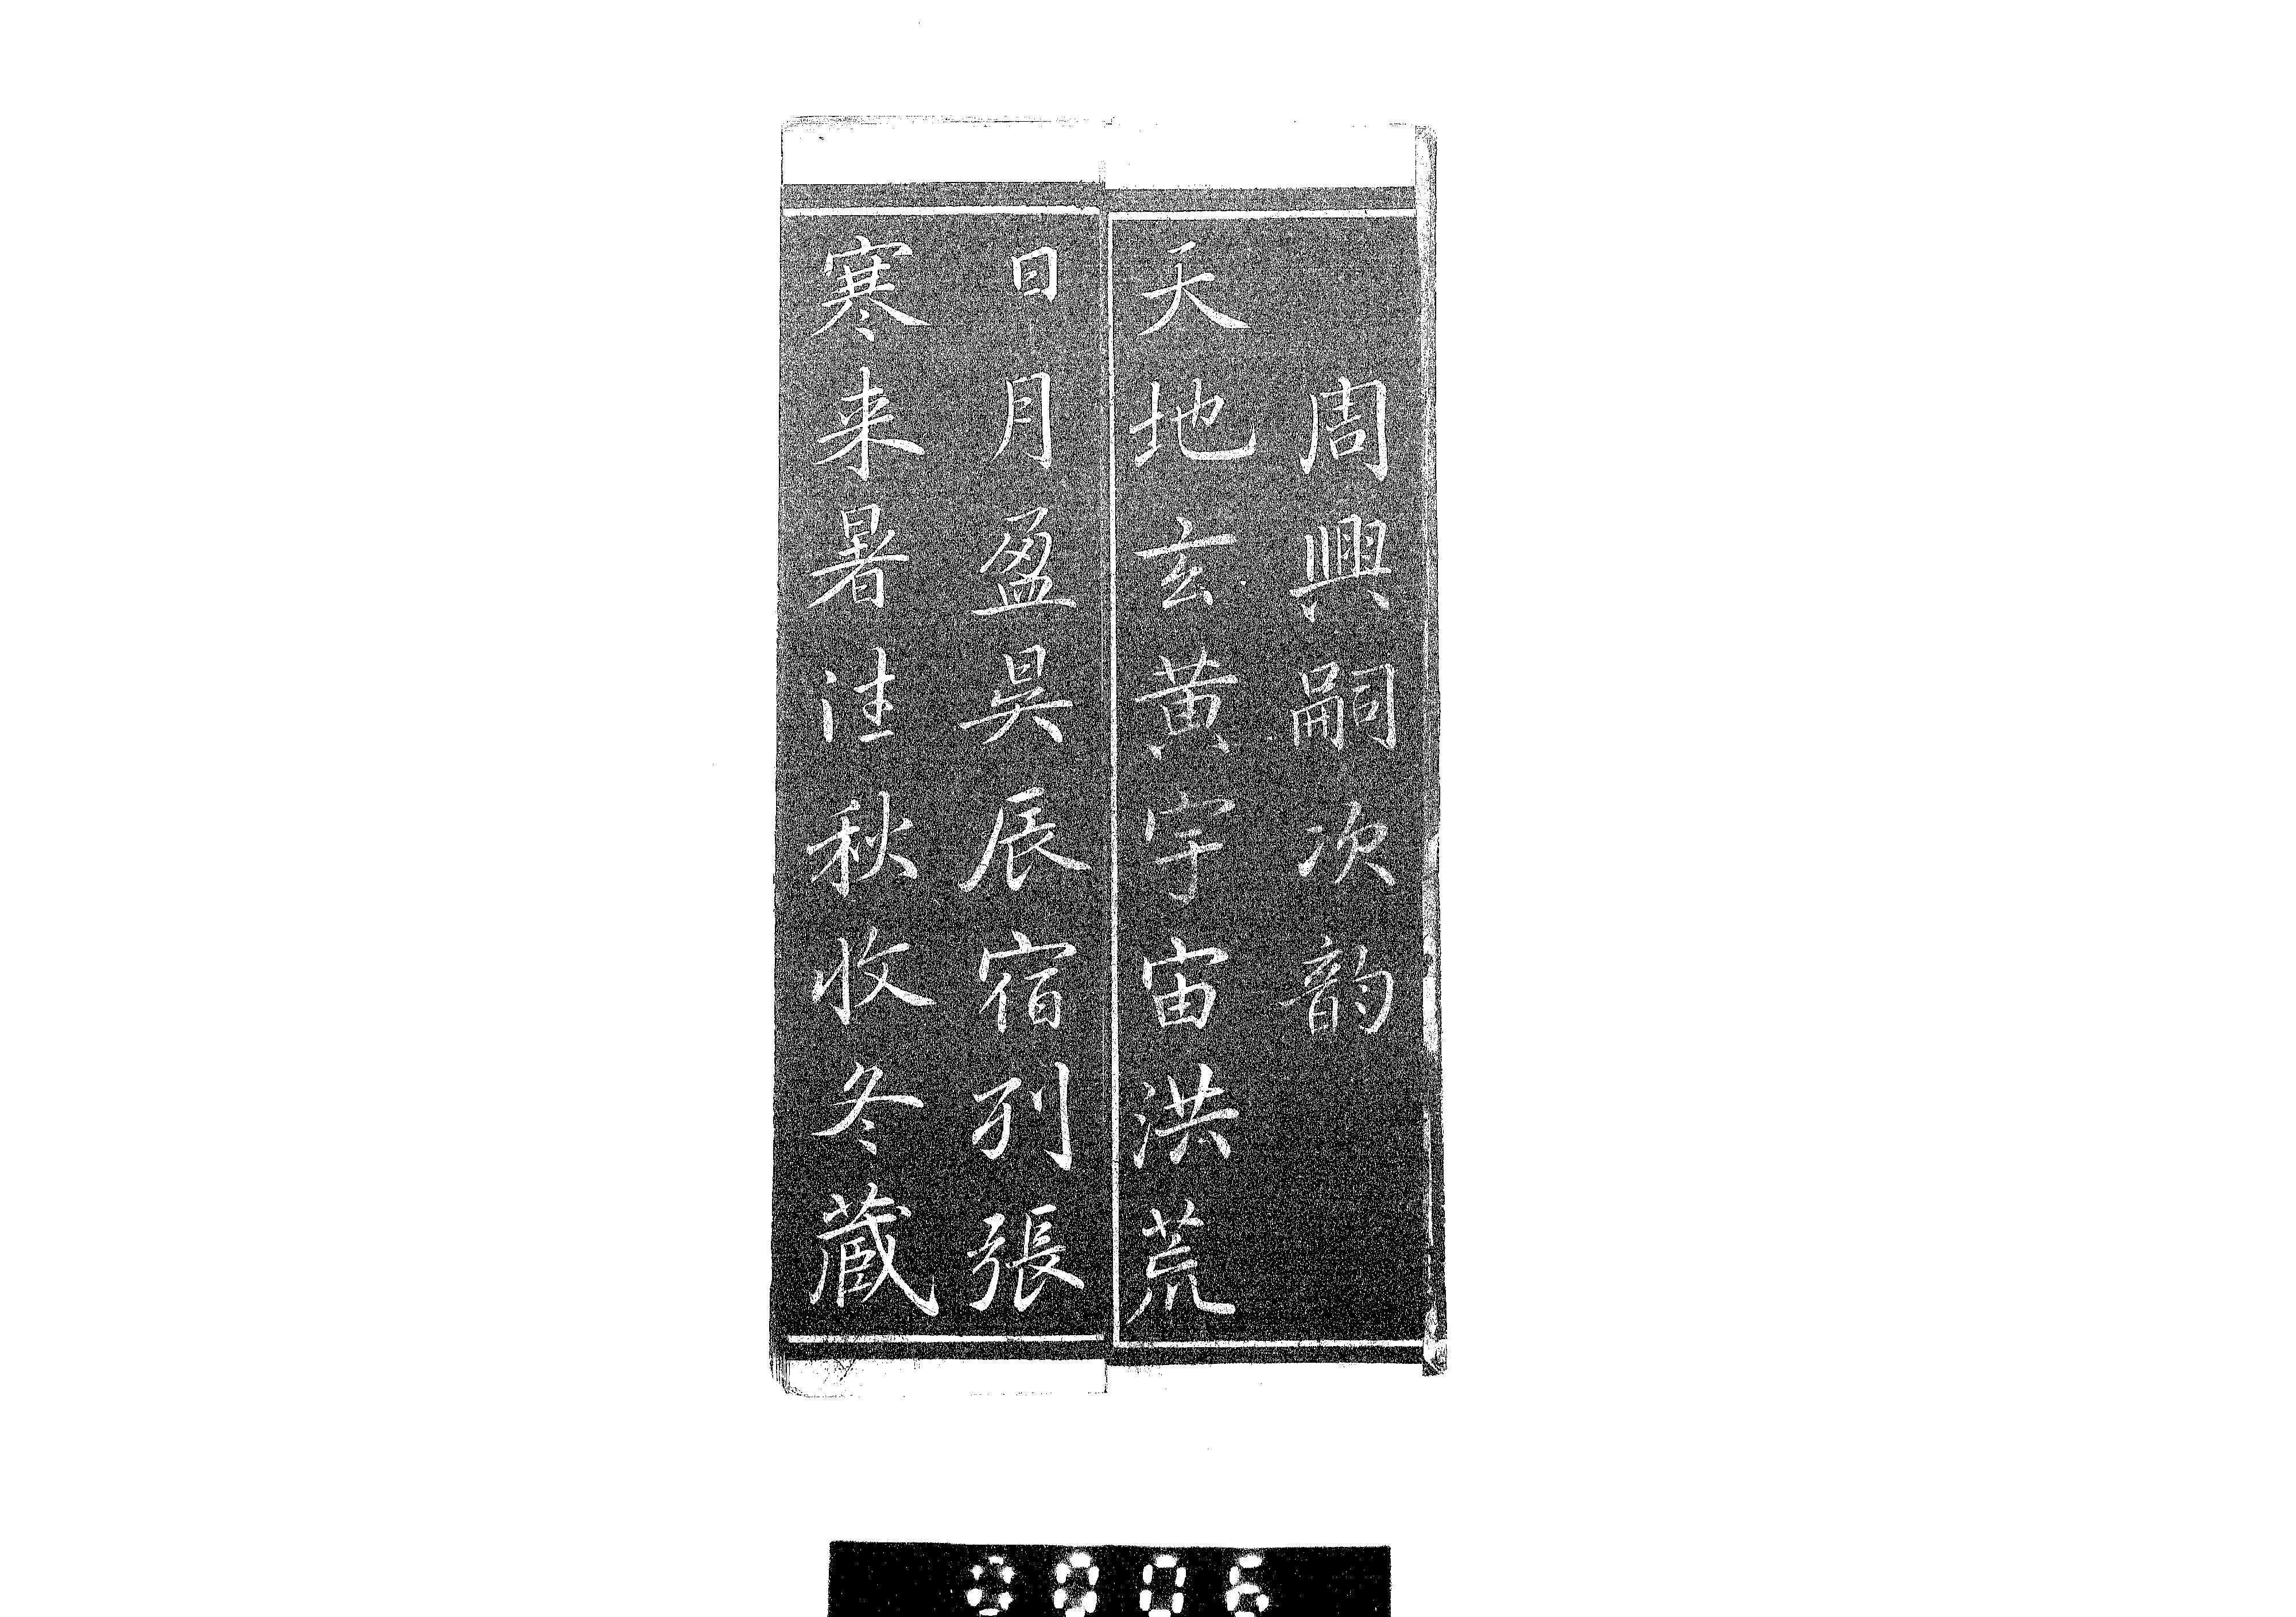 周興嗣次韵
天地玄黄宇宙洪荒
日月盈昃辰宿列張
寒来暑往秋收冬蔵
0006